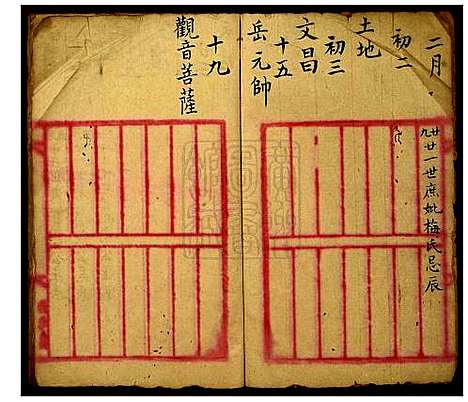 二月
初二
土地
初三
文昌
十五
岳元帥
十九
觀音菩薩
廿九
廿一世庶妣梅氏忌辰